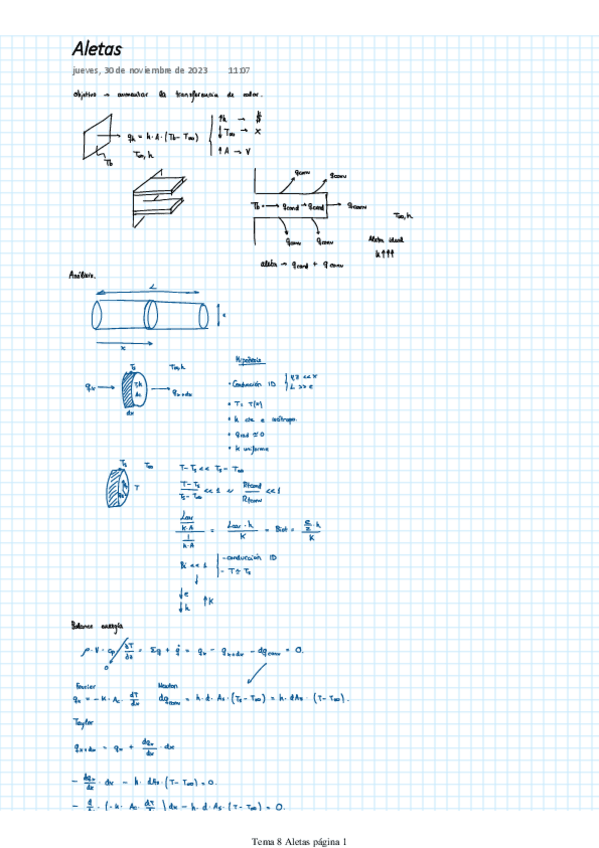 Aletas
jueves, 30 de noviembre de 2023 11:07
objetivo → aumentar la transferencia de calor.
↑h → $
q_h = h·A·(Tb - T∞)
↓T∞ → x
↑A → v
T∞, h
Tb
qconv qconv
Tb → qcond → qcond → qconv
T∞, h
qconv qconv
Aleta ideal
k↑↑↑
aleta → qcond + qconv
Análisis.
L
e
x
Hipótesis
T∞, h
qx → → qx+dx
dx
• Conducción 1D
L >> e
• T = T(x)
• k cte e isótropo.
• qrad ≈ 0
• h uniforme
Ts T∞ T
T - Ts << Ts - T∞
(T - Ts)/(Ts - T∞) << 1 ~ Rtcond/Rtconv << 1
(Lcar/(k·A))/(1/(h·A)) = Lcar·h/k = Biot = (e/2·h)/k
Bi << 1
- conducción 1D
- T ≈ Ts
↓e
↓h ↑k
Balance energía
ρ·V·cp = Σq + q̇ = qx - qx+dx - dqconv = 0.
0
Fourier Newton
qx = -k·Ac·dT/dx dqconv = h·d·As·(Ts - T∞) = h·dAs·(T - T∞).
Taylor
qx+dx = qx + dqx/dx·dx
- dqx/dx·dx - h·dAs·(T - T∞) = 0.
- d/dx·(-k·Ac·dT/dx)dx - h·d·As·(T - T∞) = 0.
Tema 8 Aletas página 1